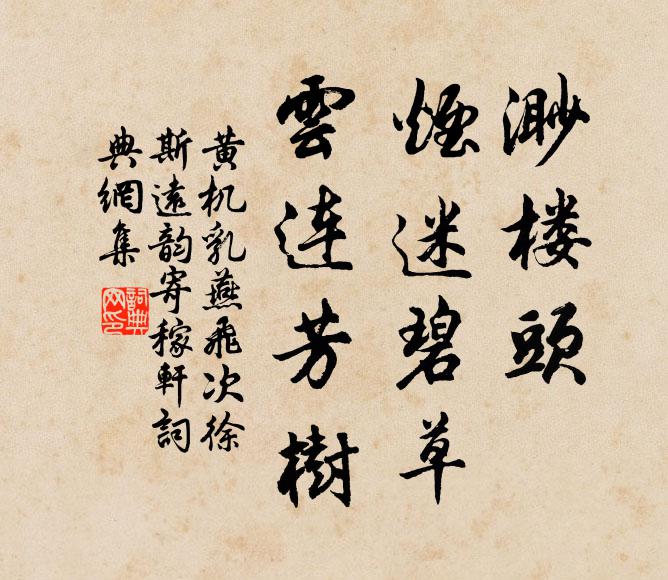 渺楼頭
煙迷碧草
雲连芳樹
黄机乳燕飛次徐
斯遠韵寄稼軒詞
典網集
詞典网印